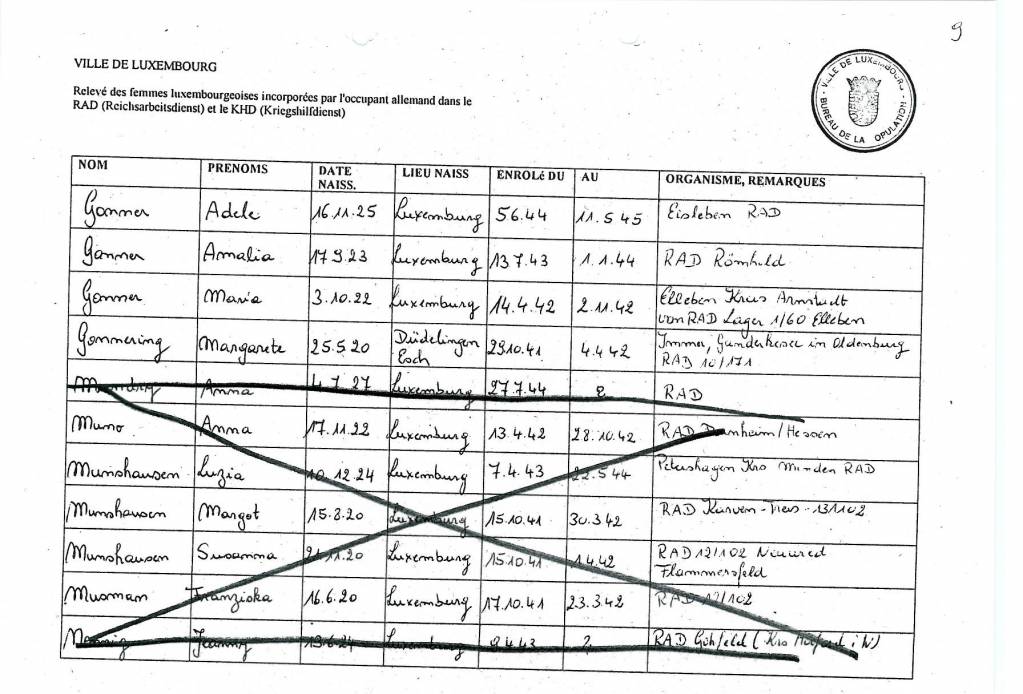 9
VILLE DE LUXEMBOURG
Relevé des femmes luxembourgeoises incorporées par l'occupant allemand dans le
RAD (Reichsarbeitsdienst) et le KHD (Kriegshilfdienst)
VILLE DE LUXEMBOURG
BUREAU DE LA OPULATION
NOM PRENOMS DATE NAISS. LIEU NAISS ENROLé DU AU ORGANISME, REMARQUES
Gonner Adele 16.11.25 Luxemburg 5 6.44 11.5 45 Eisleben RAD
Gonner Amalia 17 9.23 Luxemburg 13 7.43 1.1.44 RAD Römhild
Gonner Maria 3.10.22 Luxemburg 14.4.42 2.11.42 Elleben Kreis Arnstadt
von RAD Lager 1/60 Elleben
Gommering Margarete 25.5 20 Düdelingen Esch 29 10.41 4.4 42 Immer, in Oldenburg
RAD 10/171
Anna 4.7.27 Luxemburg 27 7.44 RAD
Muno Anna 17.11.22 Luxemburg 13.4.42 28.10.42 RAD /Hessen
Munshausen Luzia 10.12.24 Luxemburg 7.4.43 22.5 44 Petershagen Krs Minden RAD
Munshausen Margot 15.8.20 Luxemburg 15.10.41 30.3.42 RAD 13/102
Munshausen Susanna 21.11.20 Luxemburg 15.10.41 1.4.42 RAD 12/102 Neuwied
Flammersfeld
Musman Franziska 16.6.20 Luxemburg 17.10.41 23.3.42 RAD 12/102
Jeanny 19.6.24 Luxemburg 9.4.43 ? RAD Göhfeld (Krs Herford i W)